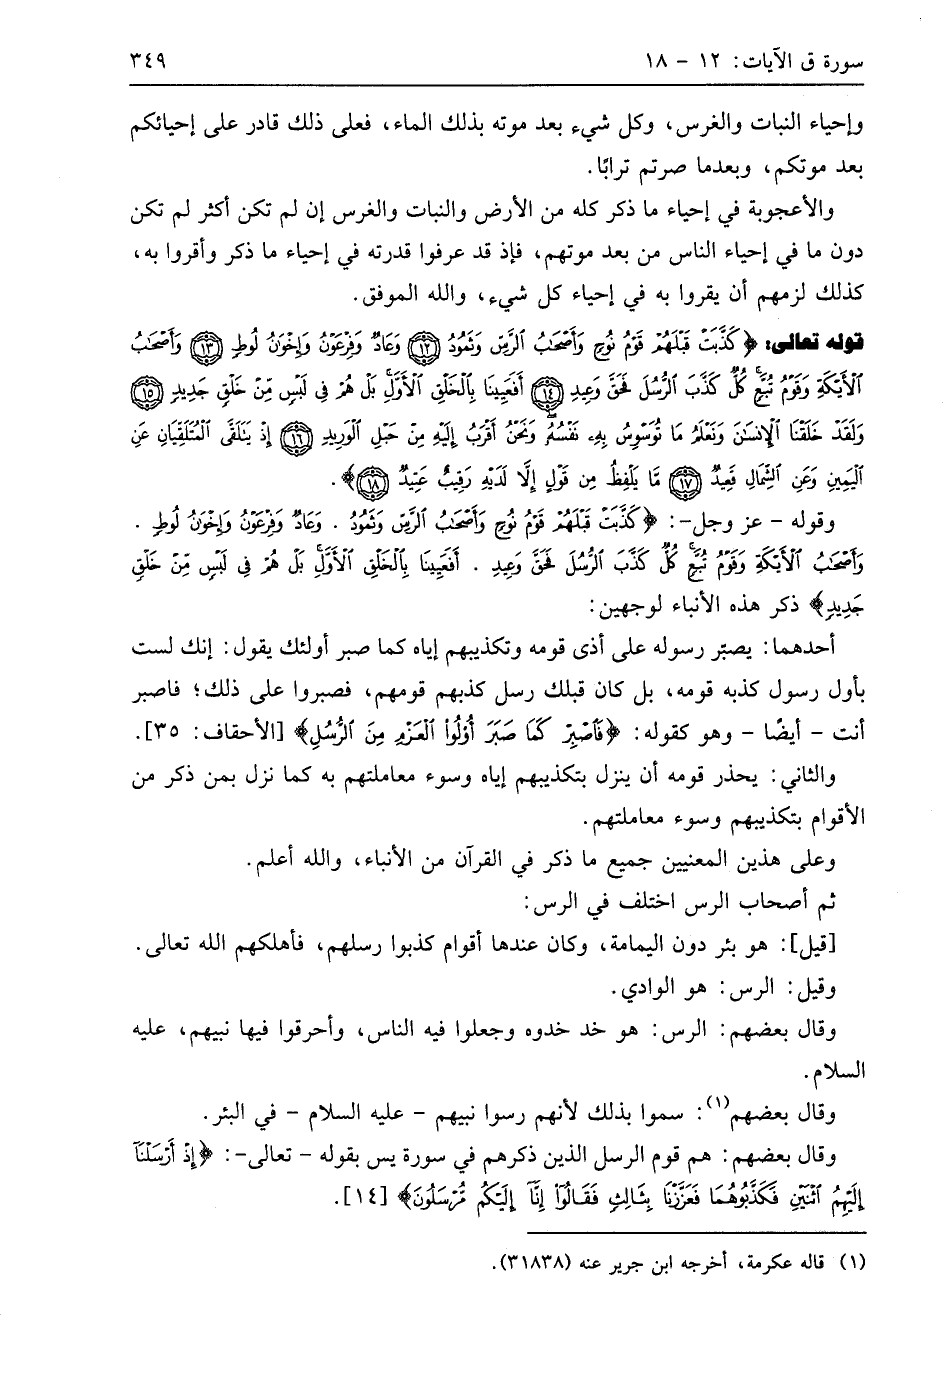 سورة ق الآيات: ١٢ - ١٨
٣٤٩
وإحياء النبات والغرس، وكل شيء بعد موته بذلك الماء، فعلى ذلك قادر على إحيائكم
بعد موتكم، وبعدما صرتم ترابًا.
والأعجوبة في إحياء ما ذكر كله من الأرض والنبات والغرس إن لم تكن أكثر لم تكن
دون ما في إحياء الناس من بعد موتهم، فإذ قد عرفوا قدرته في إحياء ما ذكر وأقروا به،
كذلك لزمهم أن يقروا به في إحياء كل شيء، والله الموفق.
قوله تعالى: ﴿كَذَّبَتْ قَبْلَهُمْ قَوْمُ نُوحٍ وَأَصْحَٰبُ ٱلرَّسِّ وَثَمُودُ ﴿١٢﴾ وَعَادٌ وَفِرْعَوْنُ وَإِخْوَٰنُ لُوطٍ ﴿١٣﴾ وَأَصْحَٰبُ
ٱلْأَيْكَةِ وَقَوْمُ تُبَّعٍ كُلٌّ كَذَّبَ ٱلرُّسُلَ فَحَقَّ وَعِيدِ ﴿١٤﴾ أَفَعَيِينَا بِٱلْخَلْقِ ٱلْأَوَّلِ بَلْ هُمْ فِى لَبْسٍ مِّنْ خَلْقٍ جَدِيدٍ ﴿١٥﴾
وَلَقَدْ خَلَقْنَا ٱلْإِنسَٰنَ وَنَعْلَمُ مَا تُوَسْوِسُ بِهِۦ نَفْسُهُۥ وَنَحْنُ أَقْرَبُ إِلَيْهِ مِنْ حَبْلِ ٱلْوَرِيدِ ﴿١٦﴾ إِذْ يَتَلَقَّى ٱلْمُتَلَقِّيَانِ عَنِ
ٱلْيَمِينِ وَعَنِ ٱلشِّمَالِ قَعِيدٌ ﴿١٧﴾ مَّا يَلْفِظُ مِن قَوْلٍ إِلَّا لَدَيْهِ رَقِيبٌ عَتِيدٌ ﴿١٨﴾﴾.
وقوله - عز وجل -: ﴿كَذَّبَتْ قَبْلَهُمْ قَوْمُ نُوحٍ وَأَصْحَٰبُ ٱلرَّسِّ وَثَمُودُ . وَعَادٌ وَفِرْعَوْنُ وَإِخْوَٰنُ لُوطٍ .
وَأَصْحَٰبُ ٱلْأَيْكَةِ وَقَوْمُ تُبَّعٍ كُلٌّ كَذَّبَ ٱلرُّسُلَ فَحَقَّ وَعِيدِ . أَفَعَيِينَا بِٱلْخَلْقِ ٱلْأَوَّلِ بَلْ هُمْ فِى لَبْسٍ مِّنْ خَلْقٍ
جَدِيدٍ﴾ ذكر هذه الأنباء لوجهين:
أحدهما: يصبّر رسوله على أذى قومه وتكذيبهم إياه كما صبر أولئك يقول: إنك لست
بأول رسول كذبه قومه، بل كان قبلك رسل كذبهم قومهم، فصبروا على ذلك؛ فاصبر
أنت - أيضًا - وهو كقوله: ﴿فَٱصْبِرْ كَمَا صَبَرَ أُوْلُواْ ٱلْعَزْمِ مِنَ ٱلرُّسُلِ﴾ [الأحقاف: ٣٥].
والثاني: يحذر قومه أن ينزل بتكذيبهم إياه وسوء معاملتهم به كما نزل بمن ذكر من
الأقوام بتكذيبهم وسوء معاملتهم.
وعلى هذين المعنيين جميع ما ذكر في القرآن من الأنباء، والله أعلم.
ثم أصحاب الرس اختلف في الرس:
[قيل]: هو بئر دون اليمامة، وكان عندها أقوام كذبوا رسلهم، فأهلكهم الله تعالى.
وقيل: الرس: هو الوادي.
وقال بعضهم: الرس: هو خد خدوه وجعلوا فيه الناس، وأحرقوا فيها نبيهم، عليه
السلام.
وقال بعضهم(١): سموا بذلك لأنهم رسوا نبيهم - عليه السلام - في البئر.
وقال بعضهم: هم قوم الرسل الذين ذكرهم في سورة يس بقوله - تعالى -: ﴿إِذْ أَرْسَلْنَآ
إِلَيْهِمُ ٱثْنَيْنِ فَكَذَّبُوهُمَا فَعَزَّزْنَا بِثَالِثٍ فَقَالُوٓاْ إِنَّآ إِلَيْكُم مُّرْسَلُونَ﴾ [١٤].
(١) قاله عكرمة، أخرجه ابن جرير عنه (٣١٨٣٨).